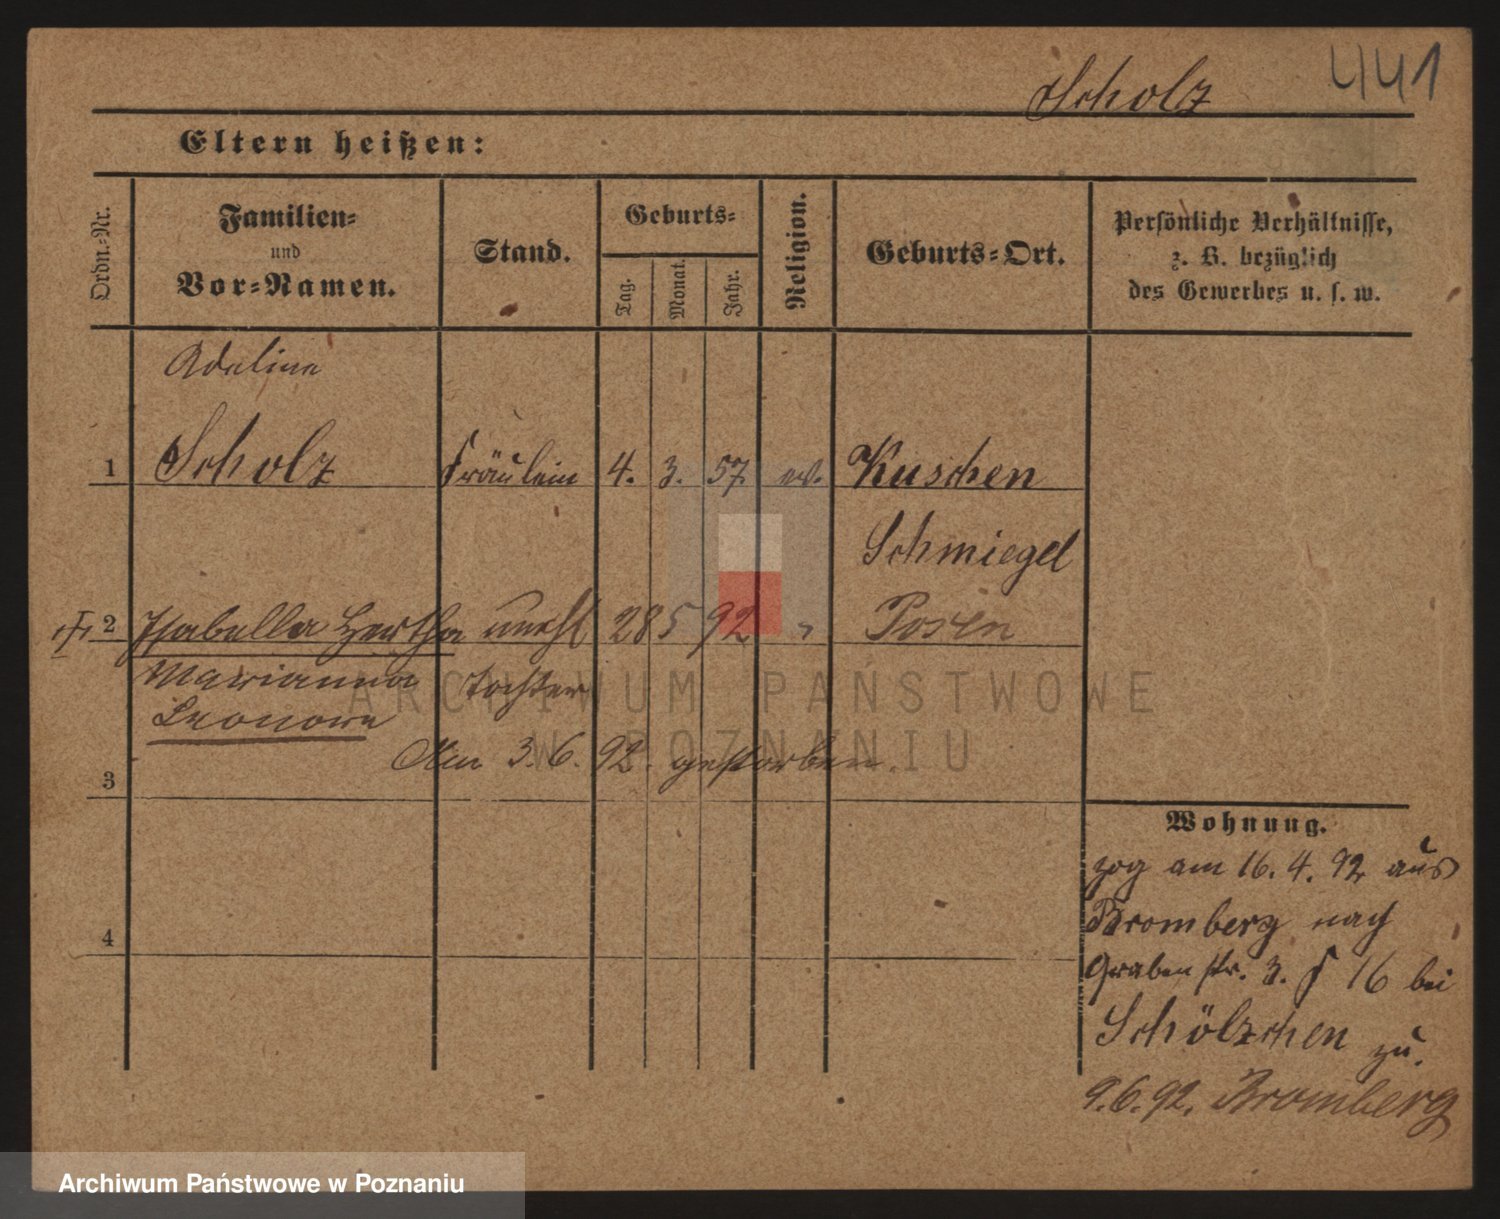 Scholz 441
Eltern heißen:
Ordn.-Nr.
Familien-
und
Vor-Namen.
Stand.
Geburts-
Tag.
Monat.
Jahr.
Religion.
Geburts-Ort.
Persönliche Verhältnisse,
z. B. bezüglich
des Gewerbes u. s. w.
Adeline
1 Scholz Fräulein 4. 3. 57 ev. Kuschen
Schmiegel
2 Isabella Hertha unehl 28 5 92 " Posen
Marianna Tochter
Leonore
Am 3. 6. 92. gestorben.
3
4
Wohnung.
zog am 16. 4. 92 aus
Bromberg nach
Grabenstr. 3. 16 bei
Schölzchen zu.
9. 6. 92. Bromberg
ARCHIWUM PAŃSTWOWE
W POZNANIU
Archiwum Państwowe w Poznaniu